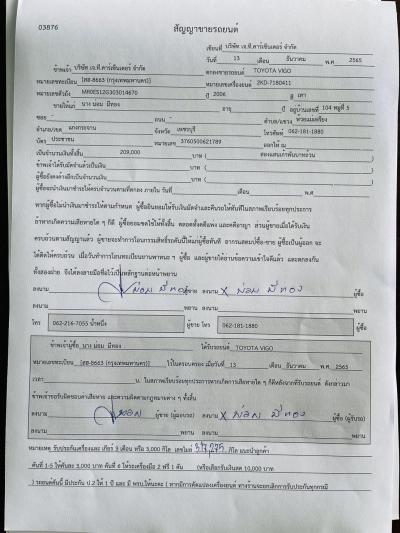 03876
สัญญาขายรถยนต์
เขียนที่ บริษัท เจ.ที.คาร์เซ็นเตอร์ จำกัด
วันที่ 13 เดือน ธันวาคม พ.ศ. 2565
ข้าพเจ้า บริษัท เจ.ที.คาร์เซ็นเตอร์ จำกัด ตกลงขายรถยนต์ TOYOTA VIGO
หมายเลขทะเบียน [ฮฮ-8663 (กรุงเทพมหานคร)] หมายเลขเครื่องยนต์ 2KD-7180411
หมายเลขตัวถัง MR0ES12G303014670 ปี 2006 สี เทา
ขายให้แก่ นาง ผ่อน มีทอง อายุ ปี อยู่บ้านเลขที่ 104 หมู่ที่ 5
ซอย - ถนน - ตำบล/แขวง ห้วยแม่เพรียง
อำเภอ/เขต แก่งกระจาน จังหวัด เพชรบุรี โทรศัพท์ 062-181-1880
บัตร ประชาชน หมายเลข 3760500621789 ออกให้ ณ
เป็นจำนวนเงินทั้งสิ้น 209,000 บาท ( สองแสนเก้าพันบาทถ้วน )
ข้าพเจ้าได้รับมัดจำแล้วเป็นเงิน บาท ( )
ผู้ซื้อยังคงค้างอีกเป็นจำนวนเงิน บาท ( )
ผู้ซื้อจะนำเงินมาชำระให้ครบจำนวนตามที่ตกลง ภายใน วันที่ เดือน พ.ศ.
หากผู้ซื้อไม่นำเงินมาชำระให้ตามกำหนด ผู้ซื้อยินยอมให้ริบเงินมัดจำและคืนรถให้ทันทีในสภาพเรียบร้อยทุกประการ
ถ้าหากเกิดความเสียหายใด ๆ ก็ดี ผู้ซื้อยอมชดใช้ให้ทั้งสิ้น ตลอดทั้งคดีแพ่ง และคดีอาญา ส่วนผู้ขายเมื่อได้รับเงิน
ครบถ้วนตามสัญญาแล้ว ผู้ขายจะทำการโอนกรรมสิทธิ์รถคันนี้ให้แก่ผู้ซื้อทันที
ทั้งสองฝ่าย จึงได้ลงลายมือชื่อไว้เป็นหลักฐานต่อหน้าพยาน
ลงนาม ผ่อน มีทอง ผู้ขาย ลงนาม X ผ่อน มีทอง ผู้ซื้อ
ลงนาม พยาน ลงนาม พยาน
โทร 062-216-7055 น้ำหนึ่ง ผู้ขาย โทร 062-181-1880 ผู้ซื้อ
ข้าพเจ้าผู้ซื้อ นาง ผ่อน มีทอง ได้รับรถยนต์ TOYOTA VIGO
หมายเลขทะเบียน [ฮฮ-8663 (กรุงเทพมหานคร)] ไว้ในครอบครอง เมื่อวันที่ 13 เดือน ธันวาคม พ.ศ. 2565
เวลา น. ในสภาพเรียบร้อยทุกประการหากเกิดการเสียหายใด ๆ ก็ดีหลังจากที่รับรถยนต์ ดังกล่าวมา
ข้าพเจ้าขอรับผิดชอบค่าเสียหาย และความผิดตามกฎหมายต่าง ๆ ทั้งสิ้น
ลงนาม ผู้ขาย (ผู้มอบรถ) ลงนาม X ผ่อน มีทอง ผู้ซื้อ (ผู้รับรถ)
ลงนาม พยาน ลงนาม พยาน
หมายเหตุ รับประกันเครื่องและ เกียร์ 3 เดือน หรือ 3,000 กิโล เลขไมล์ กิโล แนะนำลูกค้า
คันที่ 1-5 ให้คันละ 3,000 บาท คันที่ 6 ให้รถเครื่องมือ 2 ฟรี 1 คัน (หรือเลือกรับเงินสด 10,000 บาท
) รถยนต์คันนี้ มีประกัน ป.2 ให้ 1 ปี และ มี พรบ.ให้นะคะ ( หากมีการดัดแปลงเครื่องยนต์ ทางร้านจะยกเลิกการรับประกันทุกกรณี